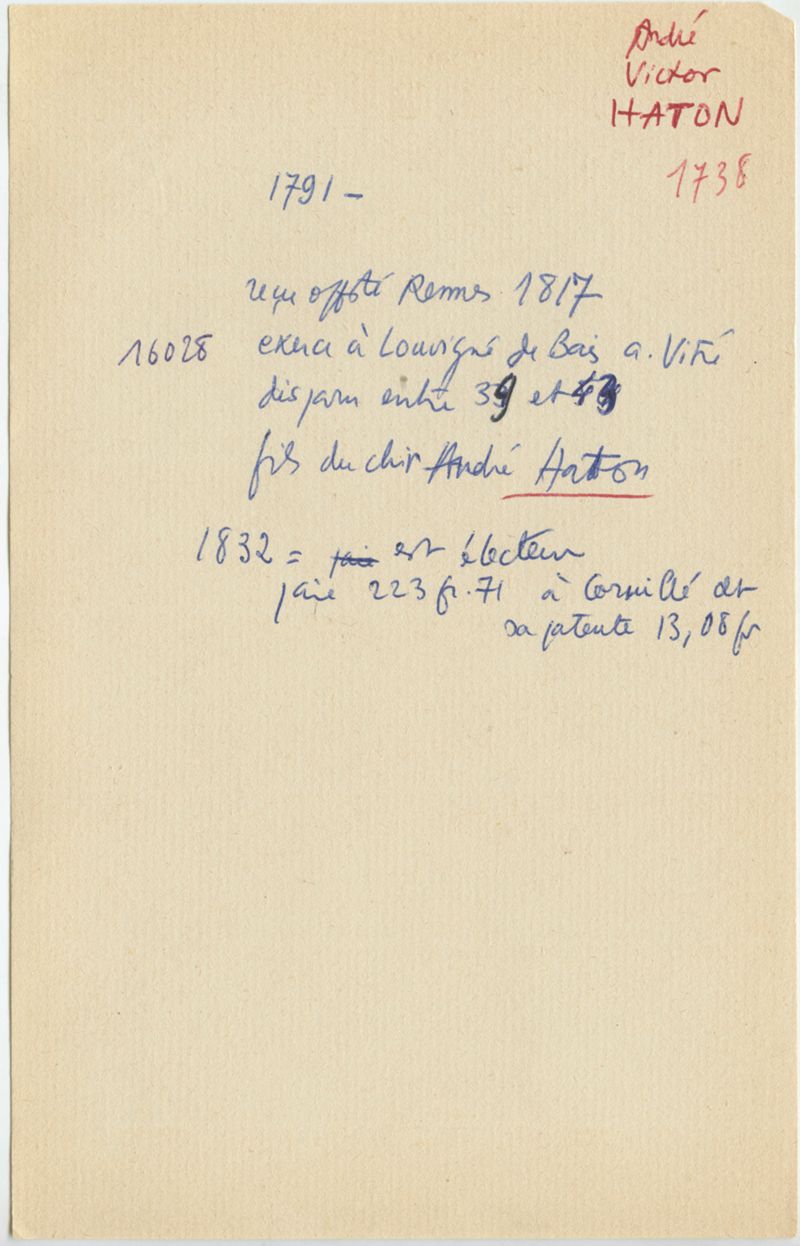 André
Victor
HATON
1738
1791 –
reçu offsté Rennes 1817
16028 exerce à Louvigné de Bais a. Vitré
disparu entre 39 et 49
fils du chir André Hatton
1832 = paie est électeur
paie 223 fr. 71 à Cornillé et
sa patente 13,08 fr